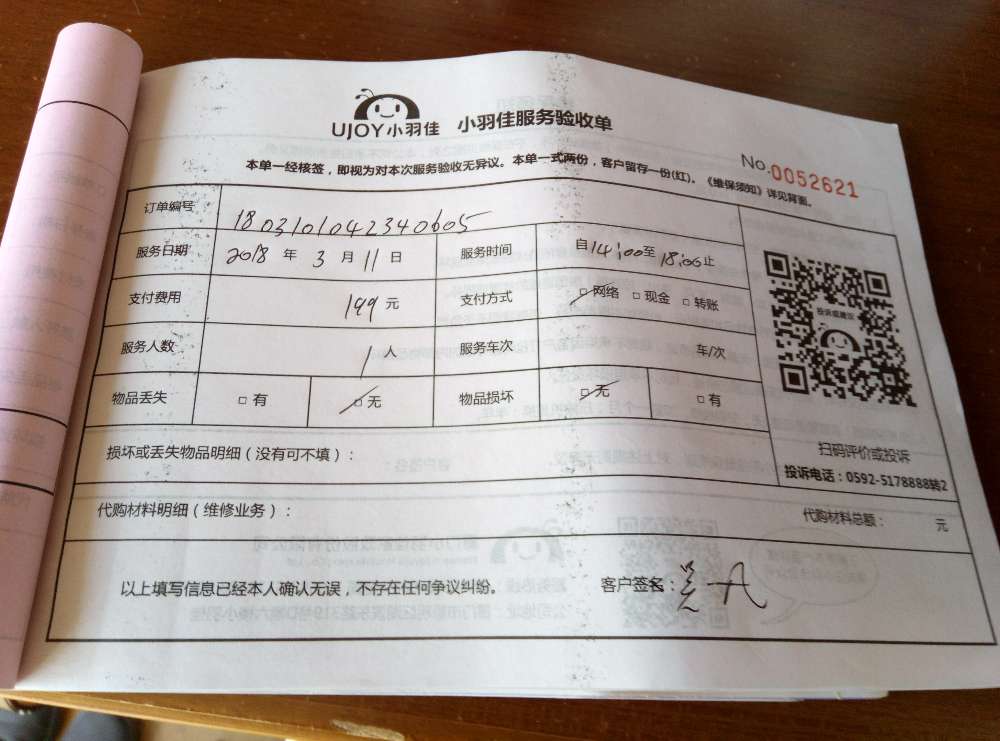 UJOY小羽佳 小羽佳服务验收单
No.0052621
本单一经核签，即视为对本次服务验收无异议。本单一式两份，客户留存一份(红)。《维保须知》详见背面。
订单编号 1803101042340605
服务日期 2018 年 3 月 11 日 服务时间 自14:00至18:00止
支付费用 199 元 支付方式 □网络 □现金 □转账
服务人数 1 人 服务车次 车/次
物品丢失 □ 有 □ 无 物品损坏 □ 无 □ 有
投诉或建议
扫码评价或投诉
投诉电话：0592-5178888转2
损坏或丢失物品明细（没有可不填）：
代购材料明细（维修业务）：
代购材料总额： 元
以上填写信息已经本人确认无误，不存在任何争议纠纷。 客户签名：